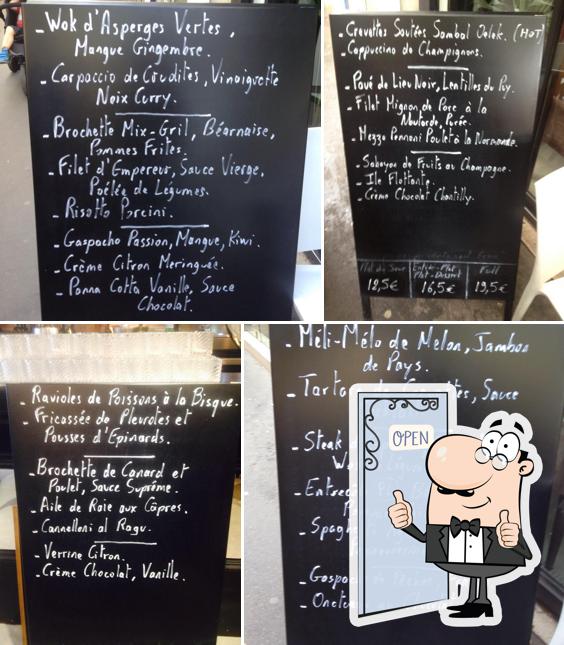 - Wok d'Asperges Vertes,
Mangue Gingembre.
- Carpaccio de Crudités, Vinaigrette
Noix Curry.
- Brochette Mix-Gril, Béarnaise,
Pommes Frites.
- Filet d'Empereur, Sauce Vierge,
Poêlée de Légumes.
- Risotto Porcini.
- Gaspacho Passion, Mangue, Kiwi.
- Crème Citron Meringuée.
- Panna Cotta Vanille, Sauce
Chocolat.
- Crevettes Sautées Sambal Oelek. (HOT)
- Cappuccino de Champignons.
- Pavé de Lieu Noir, Lentilles du Puy.
- Filet Mignon de Porc à la
Moutarde, Purée.
- Mezzo Pennoni Poulet à la Normande.
- Sabayon de Fruits au Champagne.
- Ile Flottante.
- Crème Chocolat Chantilly.
Plat du Jour
12,5€
Entrée-Plat
Plat-Dessert
16,5€
Full
19,5€
- Ravioles de Poissons à la Bisque.
- Fricassée de Pleurotes et
Pousses d'Epinards.
- Brochette de Canard et
Poulet, Sauce Suprême.
- Aile de Raie aux Câpres.
- Cannelloni al Ragu.
- Verrine Citron.
- Crème Chocolat, Vanille.
- Méli-Mélo de Melon, Jambon
de Pays.
Sauce
- Steak
OPEN